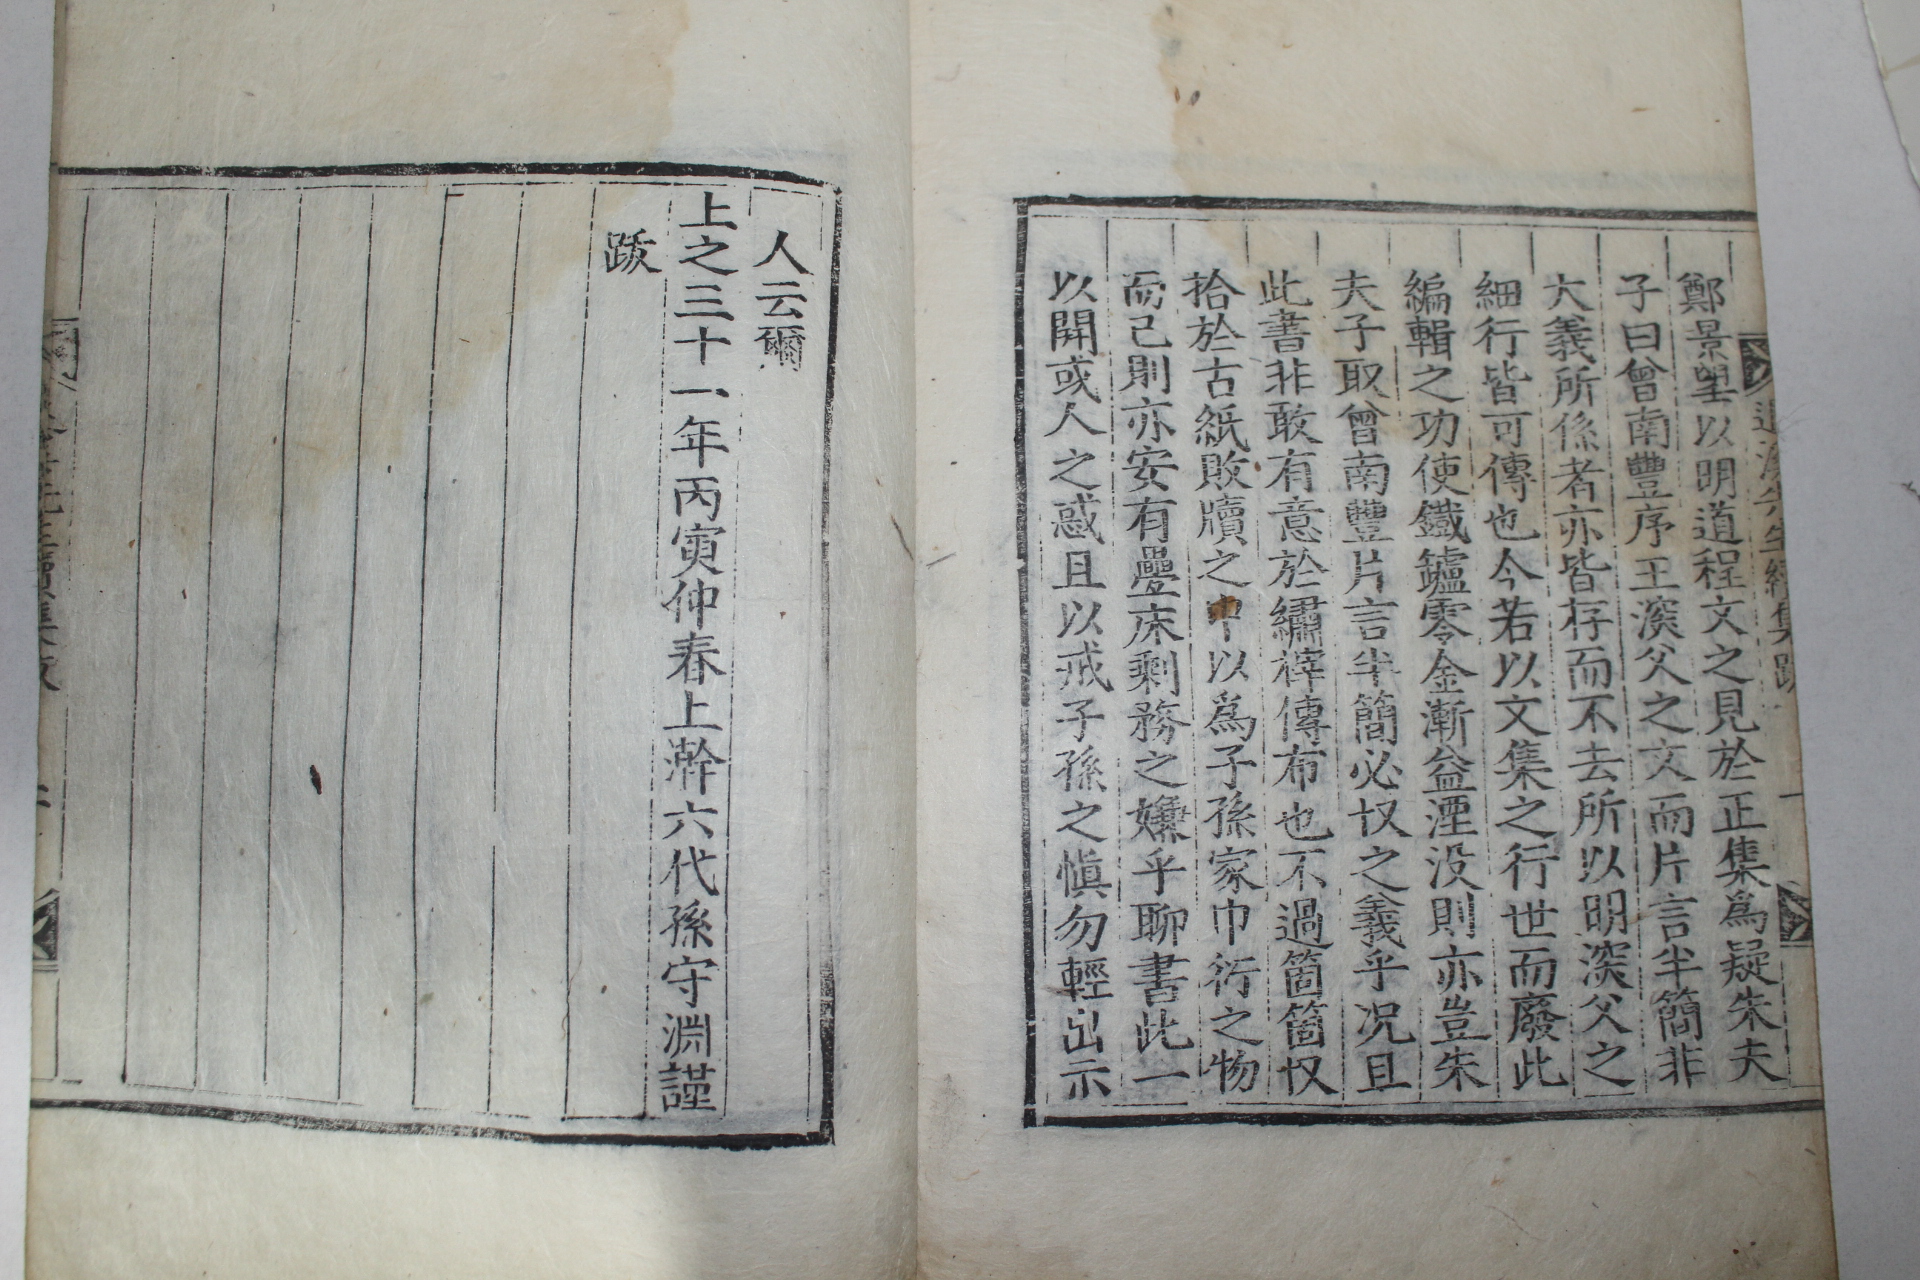 鄭景望以明道程文之見於正集爲疑朱夫
子曰曾南豐序王深父之文而片言半簡非
大義所係者亦皆存而不去所以明深父之
細行皆可傳也今若以文集之行世而廢此
編輯之功使鐵鑪零金漸益湮没則亦豈朱
夫子取曾南豐片言半簡必収之義乎况且
此書非敢有意於繡梓傳布也不過箇箇収
拾於古紙敗牘之中以爲子孫家巾衍之物
而已則亦安有疊床剩務之嫌乎聊書此一
以開或人之惑且以戒子孫之愼勿輕出示
退溪先生續集跋
一
人云爾
上之三十一年丙寅仲春上澣六代孫守淵謹
跋